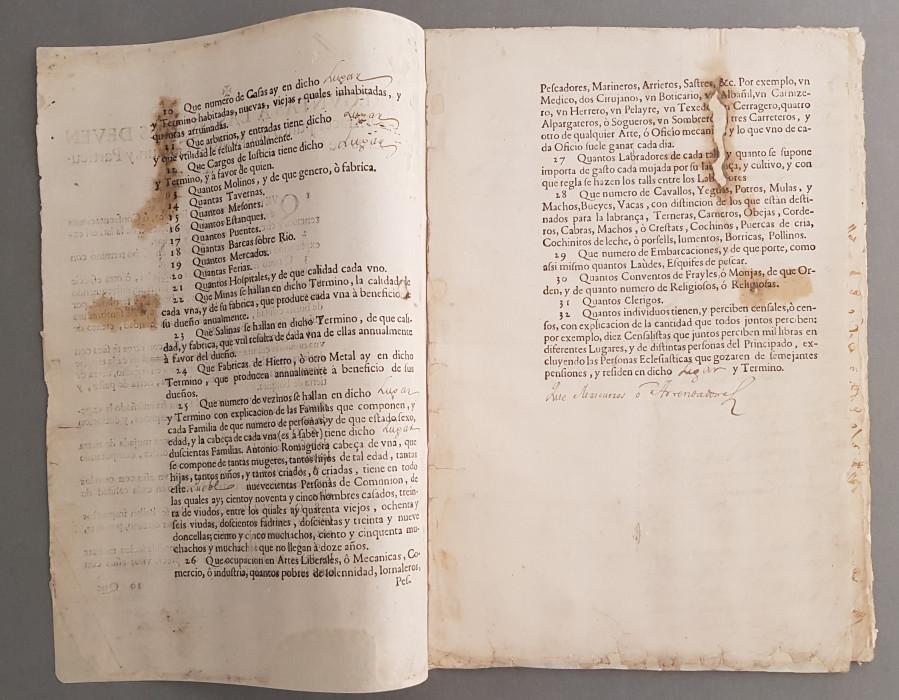 10 Que numero de Casas ay en dicho Lugar
y Termino habitadas, nuevas, viejas, quales inhabitadas, y
quantas arruinadas.
11 Que arbitrios, y entradas tiene dicho Lugar
y que vtilidad le resulta anualmente.
12 Que Cargos de Iusticia tiene dicho Lugar
y Termino, y à favor de quien.
13 Quantos Molinos, y de que genero, ò fabrica.
14 Quantas Tavernas.
15 Quantos Mesones.
16 Quantos Estanques.
17 Quantos Puentes.
18 Quantas Barcas sobre Rio.
19 Quantos Mercados.
20 Quantas Ferias.
21 Quantos Hospitales, y de que calidad cada vno.
22 Que Minas se hallan en dicho Termino, la calidad de
cada vna, y de su fabrica, que produce cada vna à beneficio de
su dueño anualmente.
23 Que Salinas se hallan en dicho Termino, de que cali-
dad, y fabrica, que vtil resulta de cada vna de ellas annualmente
à favor del dueño.
24 Que Fabricas de Hierro, ò otro Metal ay en dicho
Termino, que producen annualmente à beneficio de sus
dueños.
25 Que numero de vezinos se hallan en dicho Lugar
y Termino con explicacion de las Familias que componen, y
cada Familia de que numero de personas, y de que estado sexo,
edad, y la cabeça de cada vna (es à saber) tiene dicho Lugar
duscientas Familias. Antonio Romaguera cabeça de vna, que
se compone de tantas mugeres, tantos hijos de tal edad, tantas
hijas, tantos niños, y tantos criados, ò criadas, tiene en todo
este Pueblo nuevecientas Personas de Comunion, de
las quales ay; ciento y noventa y cinco hombres casados, trein-
ta de viudos, entre los quales ay quarenta viejos, ochenta y
seis viudas, doscientos fadrines, doscientas y treinta y nueve
doncellas; ciento y cinco muchachos, ciento y cinquenta mu-
chachos y muchachas que no llegan à doze años.
26 Que ocupacion en Artes Liberales, ò Mecanicas, Co-
mercio, ò industria, quantos pobres de solennidad, Iornaleros,
Pes-
Pescadores, Marineros, Arrieros, Sastres, &c. Por exemplo, vn
Medico, dos Cirujanos, vn Boticario, vn Albañil, vn Carnize-
ro, vn Herrero, vn Pelayre, vn Texedor, vn Cerragero, quatro
Alpargateros, ò Sogueros, vn Sombrerero, tres Carreteros, y
otro de qualquier Arte, ò Oficio mecanico, y lo que vno de ca-
da Oficio suele ganar cada dia.
27 Quantos Labradores de cada talla, y quanto se supone
importa de gasto cada mujada por su labrança, y cultivo, y con
que regla se hazen los talls entre los Labradores
28 Que numero de Cavallos, Yeguas, Potros, Mulas, y
Machos, Bueyes, Vacas, con distincion de los que están desti-
nados para la labrança, Terneras, Carneros, Obejas, Corde-
ros, Cabras, Machos, ò Crestats, Cochinos, Puercas de cria,
Cochinitos de leche, ò porsells, Iumentos, Borricas, Pollinos.
29 Que numero de Embarcaciones, y de que porte, como
assi mismo quantos Laùdes, Esquifes de pescar.
30 Quantos Conventos de Frayles, ò Monjas, de que Or-
den, y de quanto numero de Religiosos, ò Religiosas.
31 Quantos Clerigos.
32 Quantos individuos tienen, y perciben censales, ò cen-
sos, con explicacion de la cantidad que todos juntos perciben;
por exemplo, diez Censalistas que juntos perciben mil libras en
diferentes Lugares, y de distintas personas del Principado, ex-
cluyendo las Personas Eclesiasticas que gozaren de semejantes
pensiones, y residen en dicho Lugar y Termino.
Que Masoveros ò Arrendadores